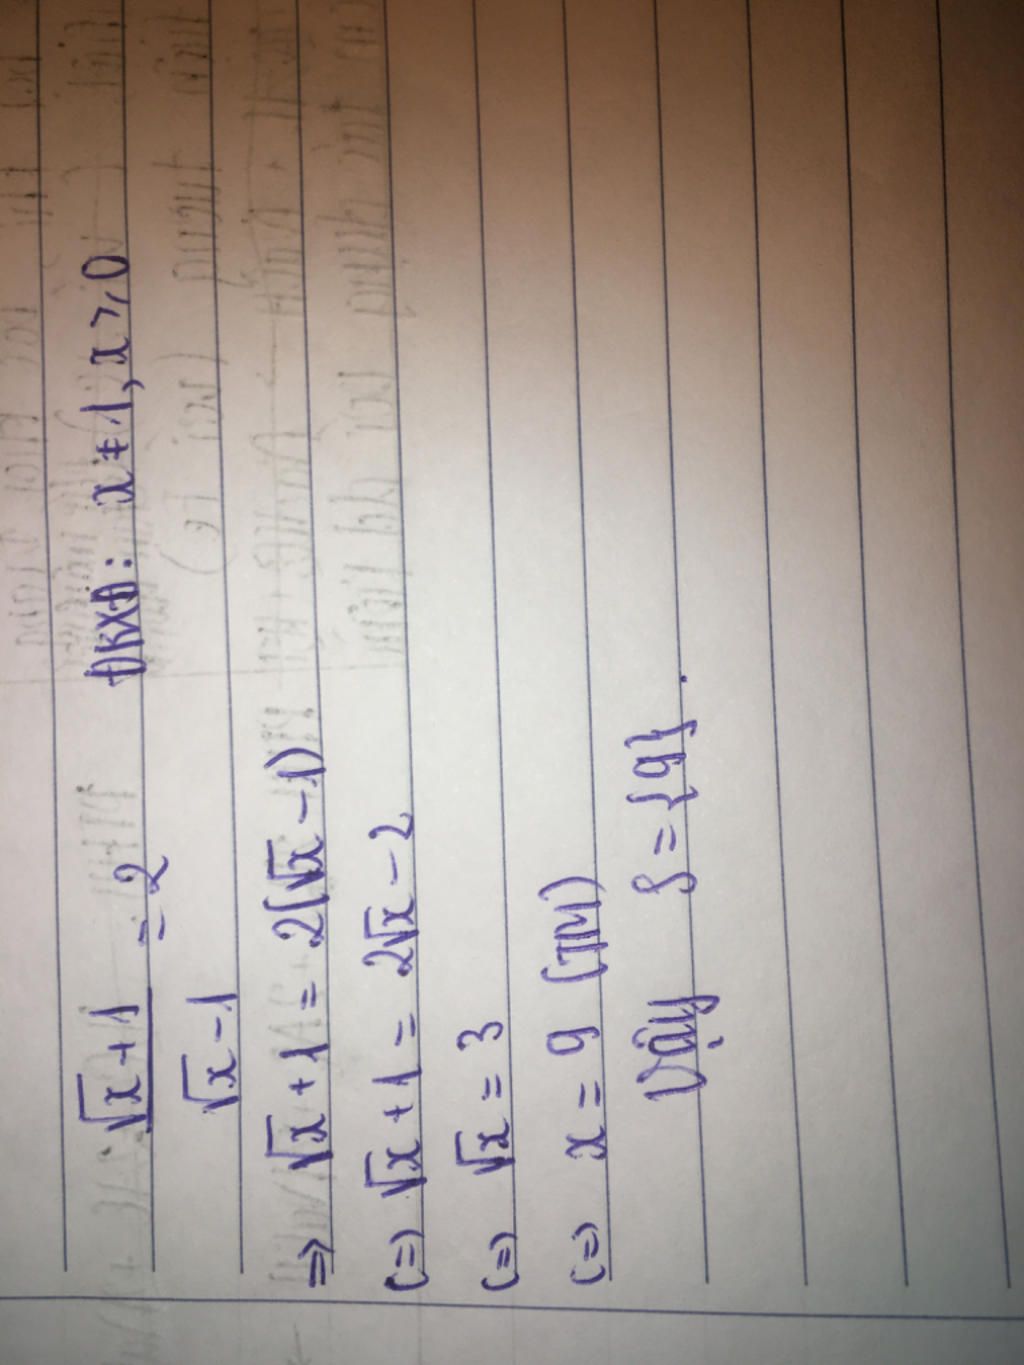 √x + 1 / √x - 1 = 2 ĐKXĐ: x ≠ 1, x ⩾ 0
=> √x + 1 = 2(√x - 1)
(=) √x + 1 = 2√x - 2
(=) √x = 3
(=) x = 9 (TM)
Vậy S = {9}.